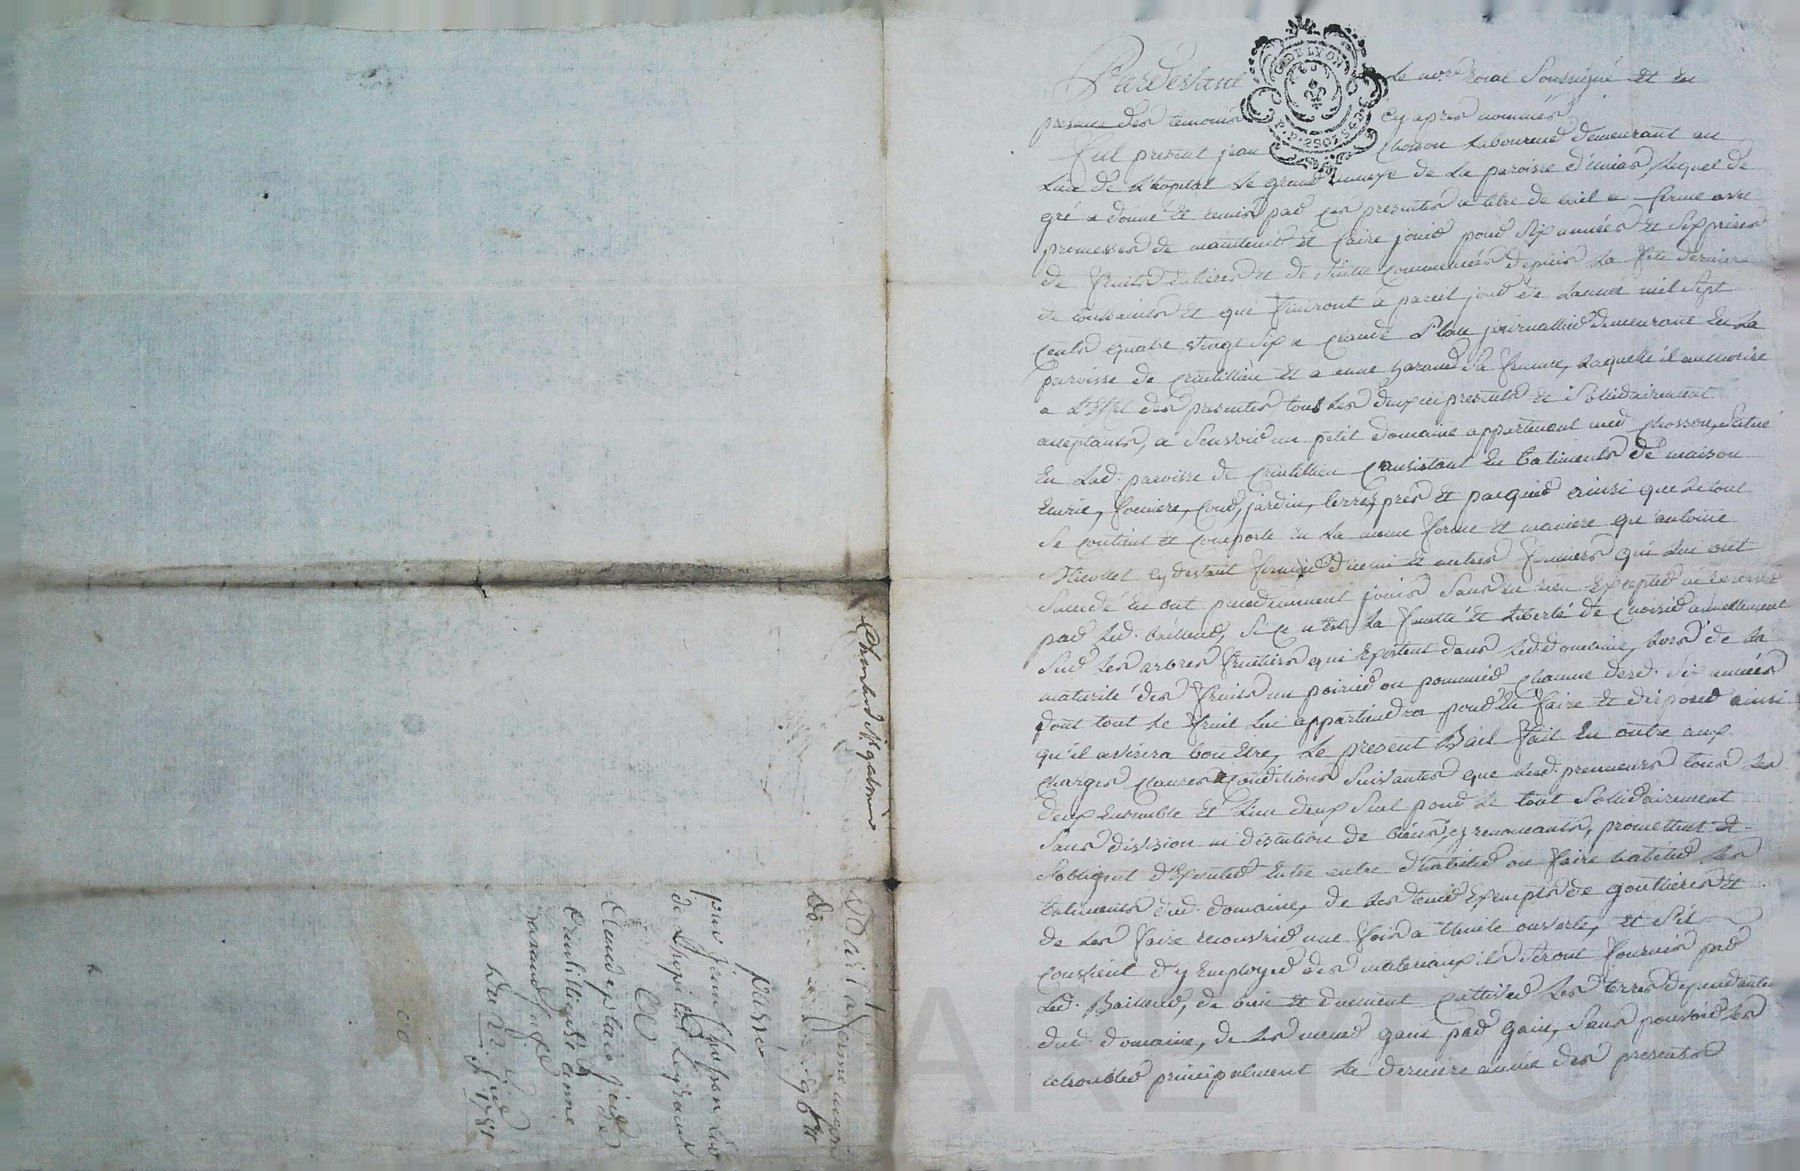 G. DE LYON
P. P. 2 SOLS 4 D.
Pardevant Le no.re Roial Soussigné et en
presence des temoins cy apres nommés
Fut present jean Chosson Laboureur demeurant au
Lieu de L'hopital Le grand annexe de La paroisse d'unias, Lequel de
gré a donné et remis par ces presentes a titre de bail a ferme avec
promesses de maintenir et faire jouir pour Six années et Six prises
de fruits entieres et de Suitte commencées depuis La fete derniere
de toussaints et qui finiront a pareil jour de L'année mil Sept
Cents quatre vingt Six a Claude journallier demeurant en La
paroisse de Craintillieu et a anne Garand Sa femme, Laquelle il authorise
a L'effet des presentes tous Les deux ici presents et Solidairement
acceptants, a Scavoir un petit domaine appartenant aud Chosson, Situé
en Lad. paroisse de Craintillieu Consistant en batiments de maison
Ecurie, feniere, Cour, jardin, terres, prés et paquier ainsi que Le tout
Se contient et comporte en La meme forme et maniere qu'antoine
cy devant fermier d'icelui et autres fermiers qui Lui ont
Succedé en ont precedemment jouis Sans en rien Excepter ni reserver
par Led. bailleur, Si Ce n'est La faculté et Liberté de Choisir annuellement
Sur Les arbres fruitiers qui Existent dans Led. domaine, Lors de La
maturité des fruits un poirier ou pommier Chacune desd. Six années
dont tout Le fruit Lui appartiendra pour En faire et disposer ainsi
qu'il avisera bon Etre, Le present Bail fait En outre aux
Charges Clauses Conditions Suivantes que Lesd. preneurs tous Les
deux Ensemble et L'un deux Seul pour Le tout Solidairement
Sans division ni discution de biens, y renoncants, promettent et
S'obligent d'Executer Entre autre d'habiter ou faire habiter Les
batiments dud. domaine, de Les tenir Exempts de gouttieres et
de Les faire recouvrir une fois a thuile ouverte, et S'il
Convient d'y Employer des materiaux ils Seront fournis par
Led. Bailleur, de bien et duement Cultiver Les terres dependantes
dud. domaine, de Les mener gant par gain, Sans pouvoir Les
retroubler principalement La derniere année des presentes
Chambard St galmier
Bail a ferme
9bre
passé
par jean Chosson du
de L'hopital Le grand
a
Claude
Craintillieu et anne
Garand Sa fe
Du 1781
CHAREYRON